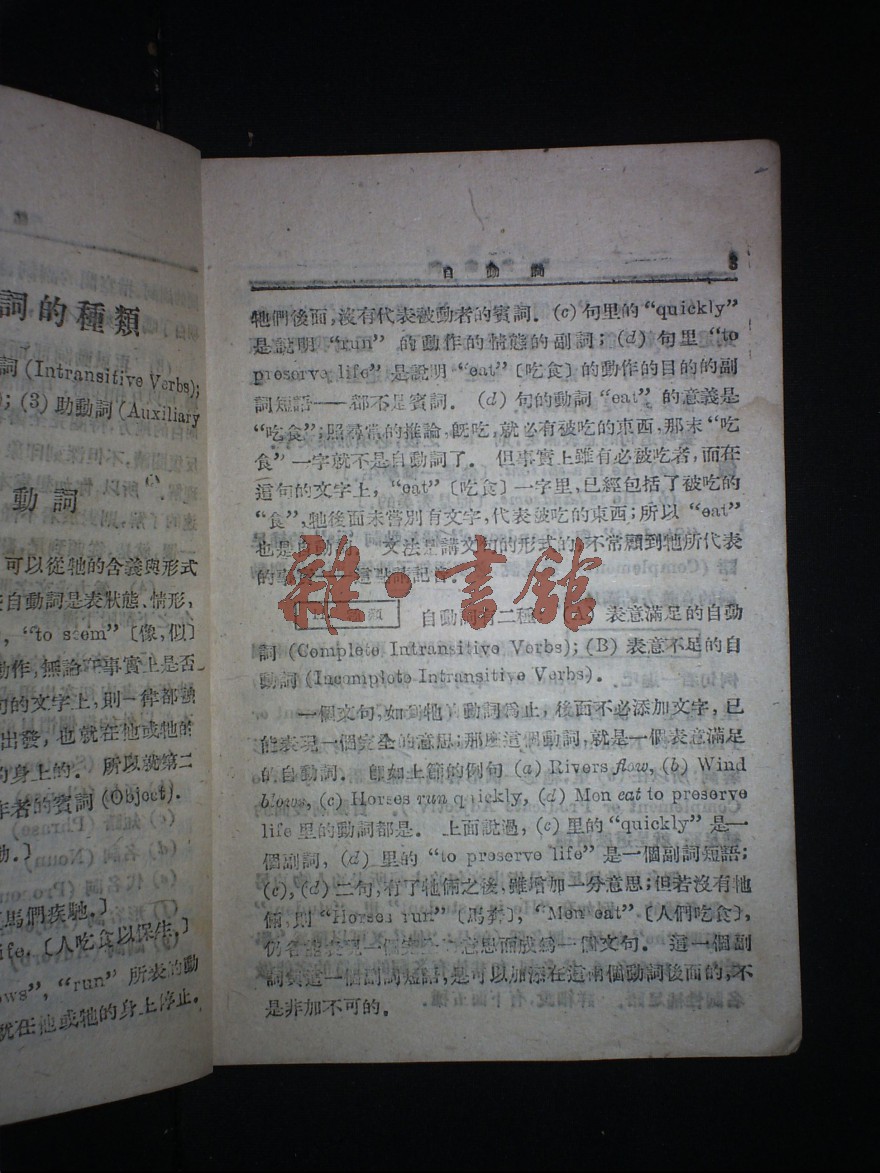 詞的種類
詞 (Intransitive Verbs);
; (3) 助動詞 (Auxiliary
動詞
可以從牠的含義與形式
自動詞是表狀態、情形,
, “to seem” 〔像,似〕
動作,無論在事實上是否
的文字上,則一律都
出發, 也就在他或牠的
的身上的. 所以就第二
作者的賓詞 (Object).
動.〕
馬們疾馳.〕
life. 〔人吃食以保生.〕
ows”, “run” 所表的動
就在他或牠的身上停止.
自動詞 3
牠們後面,沒有代表被動者的賓詞. (c) 句里的 “quickly”
是說明 “run” 的動作的情態的副詞; (d) 句里 “to
preserve life” 是說明 “eat” 〔吃食〕的動作的目的的副
詞短語——都不是賓詞. (d) 句的動詞 “eat” 的意義是
“吃食”;照尋常的推論,既吃,就必有被吃的東西,那末 “吃
食” 一字就不是自動詞了. 但事實上雖有必被吃者,而在
這句的文字上, “eat” 〔吃食〕一字里,已經包括了被吃的
“食”,牠後面未嘗別有文字,代表被吃的東西;所以 “eat”
也是自動 文法是講文句的形式的,不常顧到牠所代表
的事 這些請記着.
類 自動詞有二種: (A) 表意滿足的自動
詞 (Complete Intransitive Verbs); (B) 表意不足的自
動詞 (Incomplete Intransitive Verbs).
一個文句,如到牠的動詞爲止,後面不必添加文字,已
能表現一個完全的意思;那麼這個動詞,就是一個表意滿足
的自動詞. 卽如上節的例句 (a) Rivers flow, (b) Wind
blows, (c) Horses run quickly, (d) Men eat to preserve
life 里的動詞都是. 上面說過, (c) 里的 “quickly” 是一
個副詞, (d) 里的 “to preserve life” 是一個副詞短語;
(c), (d) 二句,有了牠倆之後,雖增加一分意思;但若沒有牠
倆,則 “Horses run” 〔馬奔〕, “Men eat” 〔人們吃食〕,
仍各能表現一個完 意思而成爲一個文句. 這一個副
詞與這一個副詞短語,是可以加添在這兩個動詞後面的,不
是非加不可的.
雜·書館